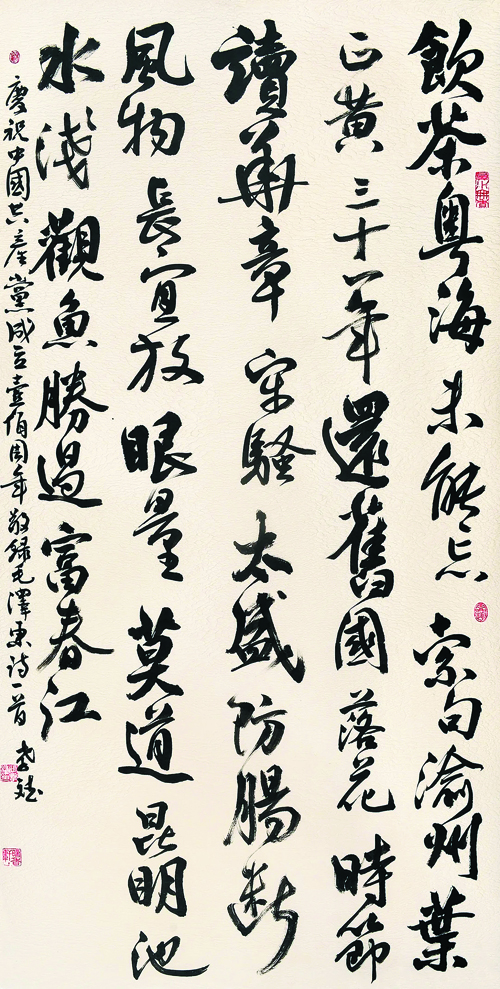 飲茶粵海未能忘索句渝州葉
正黃三十一年還舊國落花時節
讀華章牢騷太盛防腸断
風物長宜放眼量莫道昆明池
水淺觀魚勝過富春江
慶祝中國共產黨成立壹佰周年敬録毛澤東詩一首